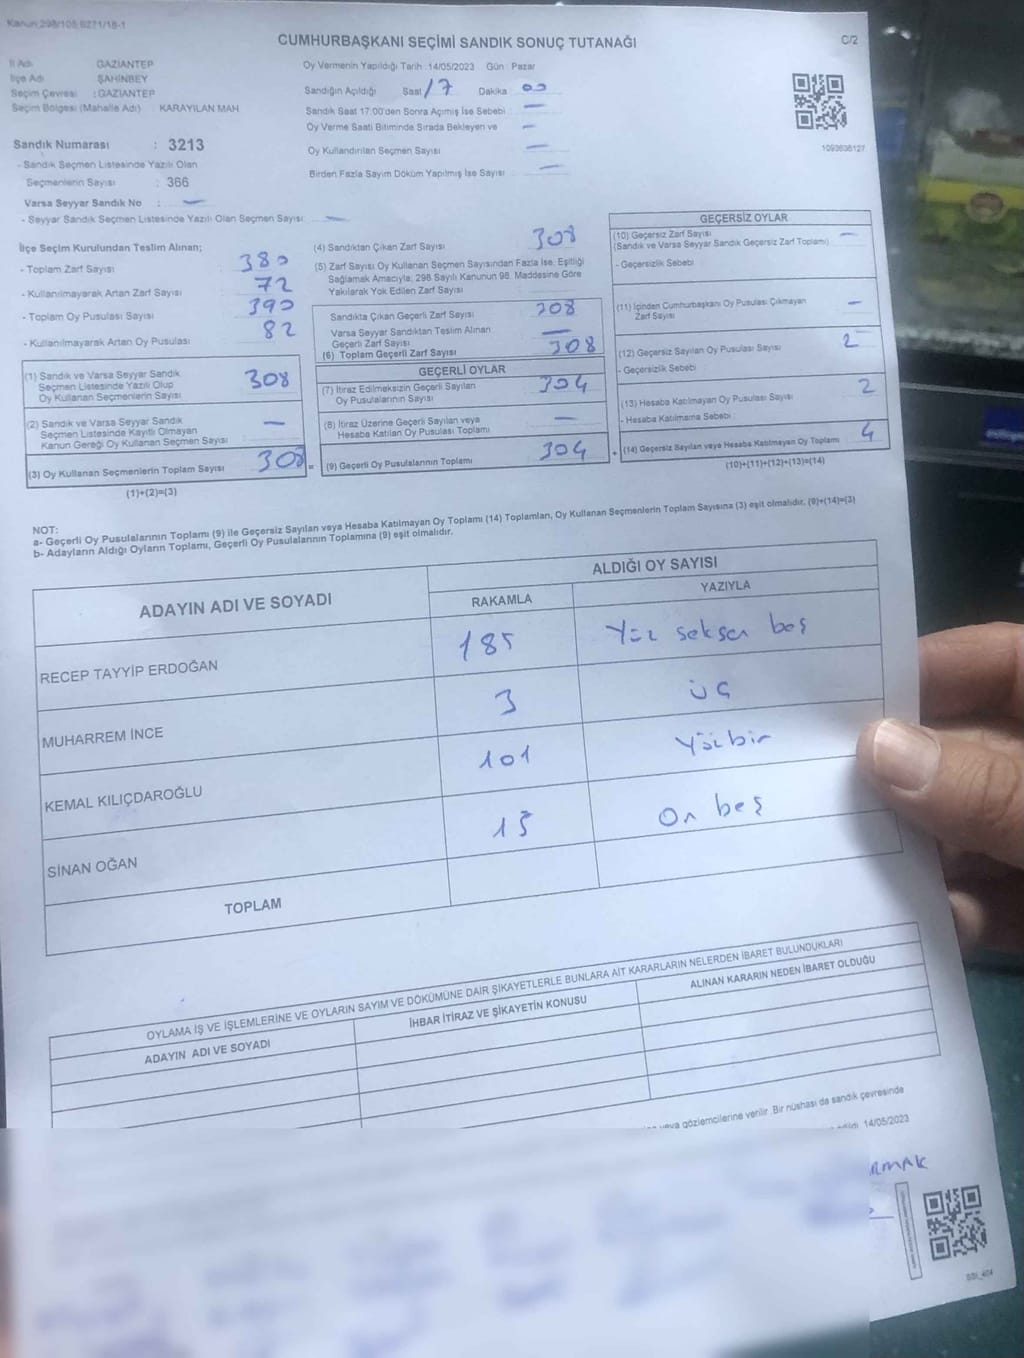 Kanun 298/105,6271/18-1
CUMHURBAŞKANI SEÇİMİ SANDIK SONUÇ TUTANAĞI
C/2
İl Adı GAZIANTEP
İlçe Adı ŞAHİNBEY
Seçim Çevresi : GAZIANTEP
Seçim Bölgesi (Mahalle Adı) KARAYILAN MAH
Oy Vermenin Yapıldığı Tarih : 14/05/2023 Gün : Pazar
Sandığın Açıldığı Saat 17 Dakika 00
Sandık Saat 17:00'den Sonra Açımış İse Sebebi : —
Oy Verme Saati Bitiminde Sırada Bekleyen ve —
Oy Kullandırılan Seçmen Sayısı —
Birden Fazla Sayım Döküm Yapılmış İse Sayısı —
1093636127
Sandık Numarası : 3213
- Sandık Seçmen Listesinde Yazılı Olan
Seçmenlerin Sayısı : 366
Varsa Seyyar Sandık No : —
- Seyyar Sandık Seçmen Listesinde Yazılı Olan Seçmen Sayısı —
İlçe Seçim Kurulundan Teslim Alınan;
- Toplam Zarf Sayısı 380
- Kullanılmayarak Artan Zarf Sayısı 72
- Toplam Oy Pusulası Sayısı 390
- Kullanılmayarak Artan Oy Pusulası 82
(1) Sandık ve Varsa Seyyar Sandık
Seçmen Listesinde Yazılı Olup
Oy Kullanan Seçmenlerin Sayısı 308
(2) Sandık ve Varsa Seyyar Sandık
Seçmen Listesinde Kayıtlı Olmayan
Kanun Gereği Oy Kullanan Seçmen Sayısı —
(3) Oy Kullanan Seçmenlerin Toplam Sayısı 308
(1)+(2)=(3)
(4) Sandıktan Çıkan Zarf Sayısı 308
(5) Zarf Sayısı Oy Kullanan Seçmen Sayısından Fazla İse, Eşitliği
Sağlamak Amacıyla; 298 Sayılı Kanunun 98. Maddesine Göre
Yakılarak Yok Edilen Zarf Sayısı —
Sandıkta Çıkan Geçerli Zarf Sayısı 308
Varsa Seyyar Sandıktan Teslim Alınan
Geçerli Zarf Sayısı —
(6) Toplam Geçerli Zarf Sayısı 308
GEÇERLİ OYLAR
(7) İtiraz Edilmeksizin Geçerli Sayılan
Oy Pusulalarının Sayısı 304
(8) İtiraz Üzerine Geçerli Sayılan veya
Hesaba Katılan Oy Pusulası Toplamı —
= (9) Geçerli Oy Pusulalarının Toplamı 304
GEÇERSİZ OYLAR
(10) Geçersiz Zarf Sayısı
(Sandık ve Varsa Seyyar Sandık Geçersiz Zarf Toplamı) —
- Geçersizlik Sebebi
(11) İçinden Cumhurbaşkanı Oy Pusulası Çıkmayan
Zarf Sayısı —
(12) Geçersiz Sayılan Oy Pusulası Sayısı 2
- Geçersizlik Sebebi
(13) Hesaba Katılmayan Oy Pusulası Sayısı 2
- Hesaba Katılmama Sebebi
+ (14) Geçersiz Sayılan veya Hesaba Katılmayan Oy Toplamı 4
(10)+(11)+(12)+(13)=(14)
NOT:
a- Geçerli Oy Pusulalarının Toplamı (9) ile Geçersiz Sayılan veya Hesaba Katılmayan Oy Toplamı (14) Toplamları, Oy Kullanan Seçmenlerin Toplam Sayısına (3) eşit olmalıdır. (9)+(14)=(3)
b- Adayların Aldığı Oyların Toplamı, Geçerli Oy Pusulalarının Toplamına (9) eşit olmalıdır.
ADAYIN ADI VE SOYADI
ALDIĞI OY SAYISI
RAKAMLA YAZIYLA
RECEP TAYYİP ERDOĞAN 185 Yüz seksen beş
MUHARREM İNCE 3 üç
KEMAL KILIÇDAROĞLU 101 Yüzbir
SİNAN OĞAN 15 On beş
TOPLAM
OYLAMA İŞ VE İŞLEMLERİNE VE OYLARIN SAYIM VE DÖKÜMÜNE DAİR ŞİKAYETLERLE BUNLARA AİT KARARLARIN NELERDEN İBARET BULUNDUKLARI
ADAYIN ADI VE SOYADI İHBAR İTİRAZ VE ŞİKAYETİN KONUSU ALINAN KARARIN NEDEN İBARET OLDUĞU
veya gözlemcilerine verilir. Bir nüshası da sandık çevresinde
14/05/2023